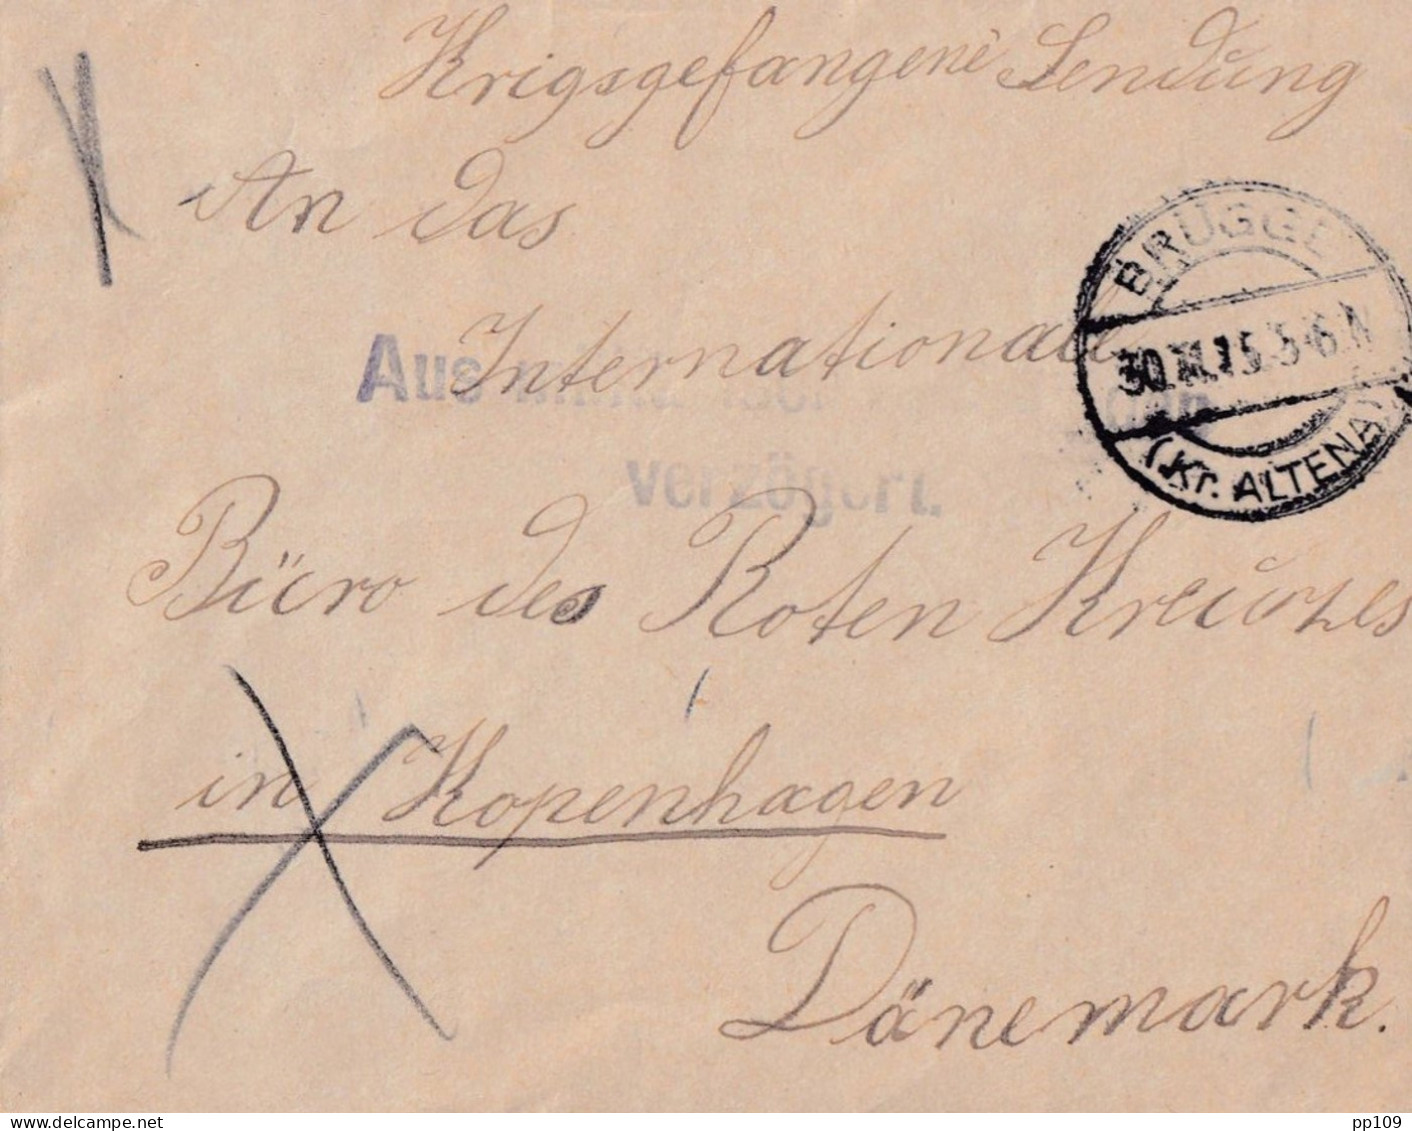 Krigsgefangene Sendung
An das
BRÜGGE
Internationale
30.XI.15.5-6.N
Aus
verzögert.
(Kr. ALTENA)
Büro des Roten Kreuzes
in Kopenhagen
Dänemark.
delcampe.net
pp109